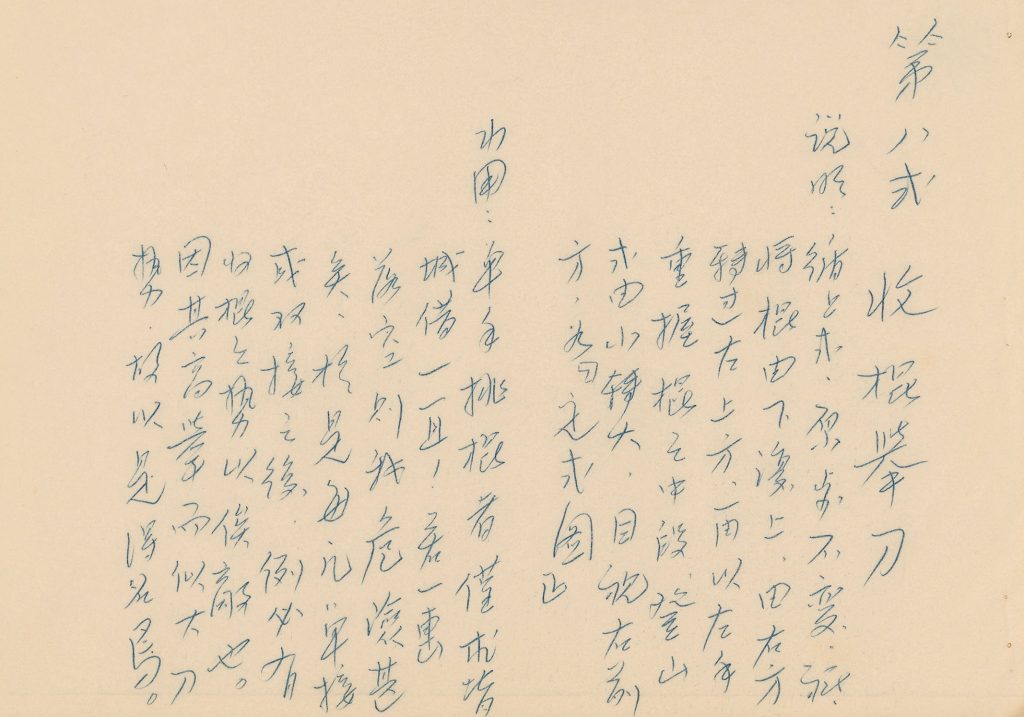 第八式 收棍举刀
说明：循上式．原步不变．祗
将棍由下複上．由右方
转过左上方．一面以左手
重握棍之中段．登山
式由小转大．目视右前
方．为定式图正
功用：单手挑棍者仅求
城借一．一旦．若一
落空则我危濒甚
矣．于是每凡单接
或双接之後．例必有
收棍之势以俟敌也。
因其高举而似大刀
势．故以是得名焉。